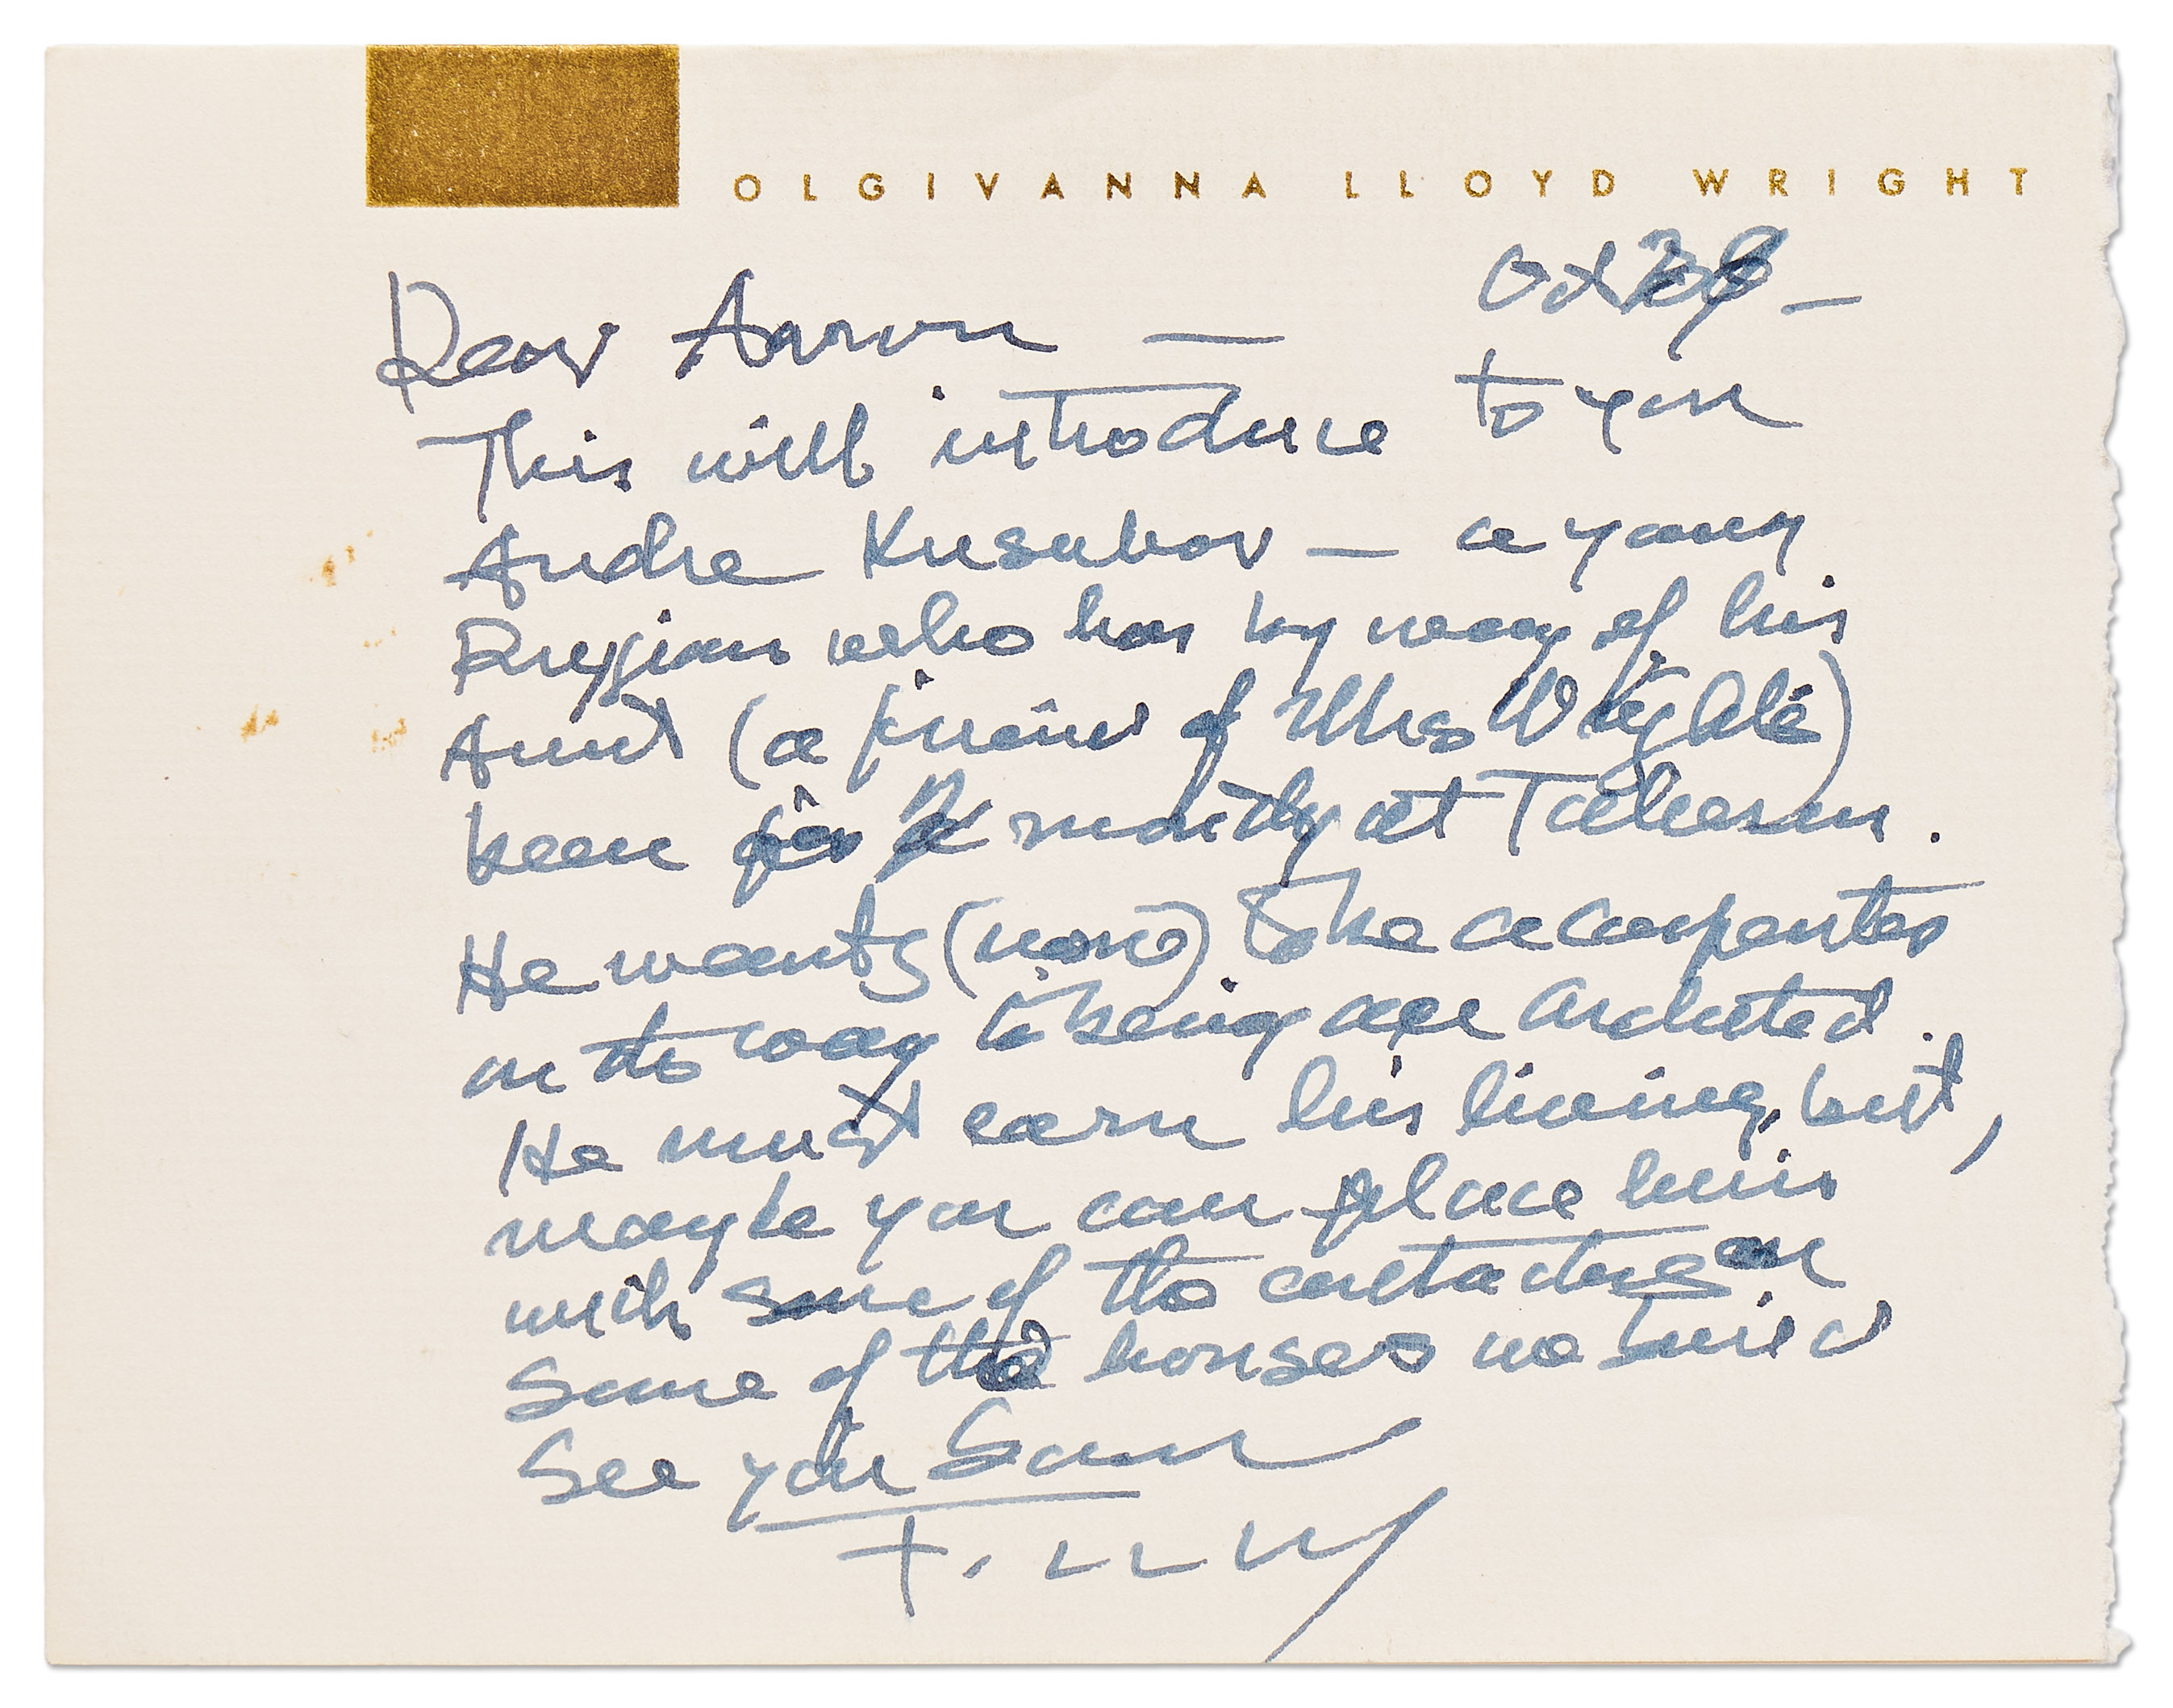 OLGIVANNA LLOYD WRIGHT
Oct
Dear Aaron —
This will introduce to you
Andre Kusubov — a young
Russian who has by way of his
Aunt (a friend of Mrs Wright)
been months at Taliesin.
He wants (now) to be a carpenter
on the way to being an architect.
He must earn his living, but,
maybe you can place him
with some of the on
some of the houses we build
See you Soon
F. LL. W